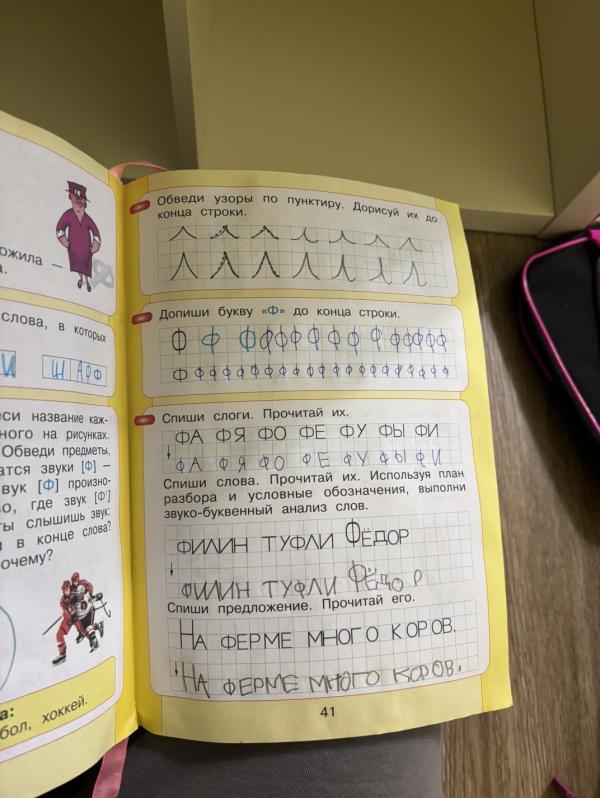 ожила —
а.
слова, в которых
И Ш АРФ
еси название каж-
ного на рисунках.
Обведи предметы,
атся звуки [Ф] —
вук [Ф] произно-
во, где звук [Ф']
ты слышишь звук:
и в конце слова?
очему?
а:
бол, хоккей.
Обведи узоры по пунктиру. Дорисуй их до
конца строки.
Допиши букву «Ф» до конца строки.
Ф Ф Ф Ф Ф Ф Ф Ф Ф Ф Ф Ф Ф Ф Ф
Ф Ф Ф Ф Ф Ф Ф Ф Ф Ф Ф Ф Ф Ф Ф Ф Ф Ф Ф Ф
Спиши слоги. Прочитай их.
ФА ФЯ ФО ФЕ ФУ ФЫ ФИ
ФА ФЯ ФО ФЕ ФУ ФЫ ФИ
Спиши слова. Прочитай их. Используя план
разбора и условные обозначения, выполни
звуко-буквенный анализ слов.
ФИЛИН ТУФЛИ ФЁДОР
ФИЛИН ТУФЛИ ФЁДОР
Спиши предложение. Прочитай его.
НА ФЕРМЕ МНОГО КОРОВ.
НА ФЕРМЕ МНОГО КОРОВ.
41